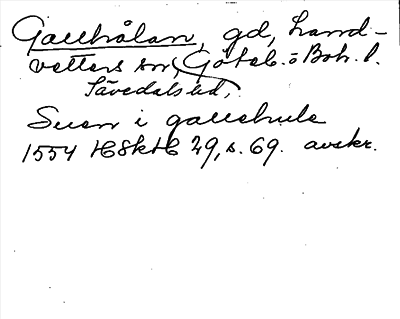 Gallhålan, gd, Land-
vetters sn, Göteb. o Boh. l.
Sävedals hd,
Suen i gallehule
1554 HSkH 29, s. 69. avskr.